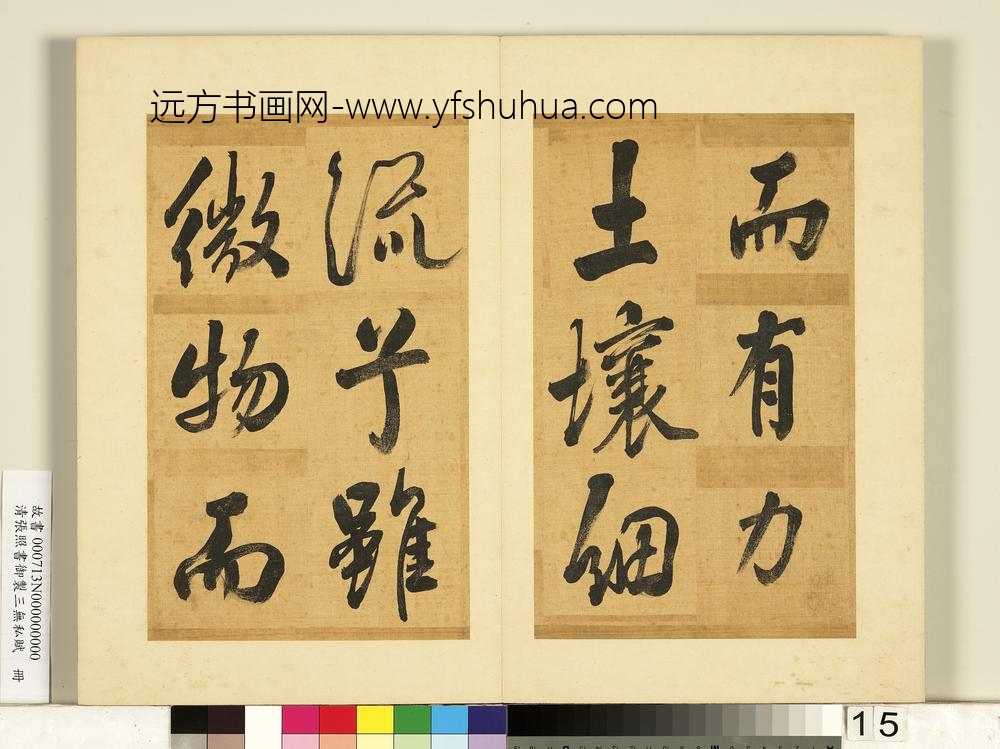 远方书画网-www.yfshuhua.com
而有力
土壤細
流兮雖
微物而
故書 000713N000000000
清張照書御製三無私賦 冊
15